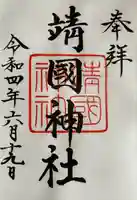 奉拝
靖國神社
靖國神社
令和四年六月十九日